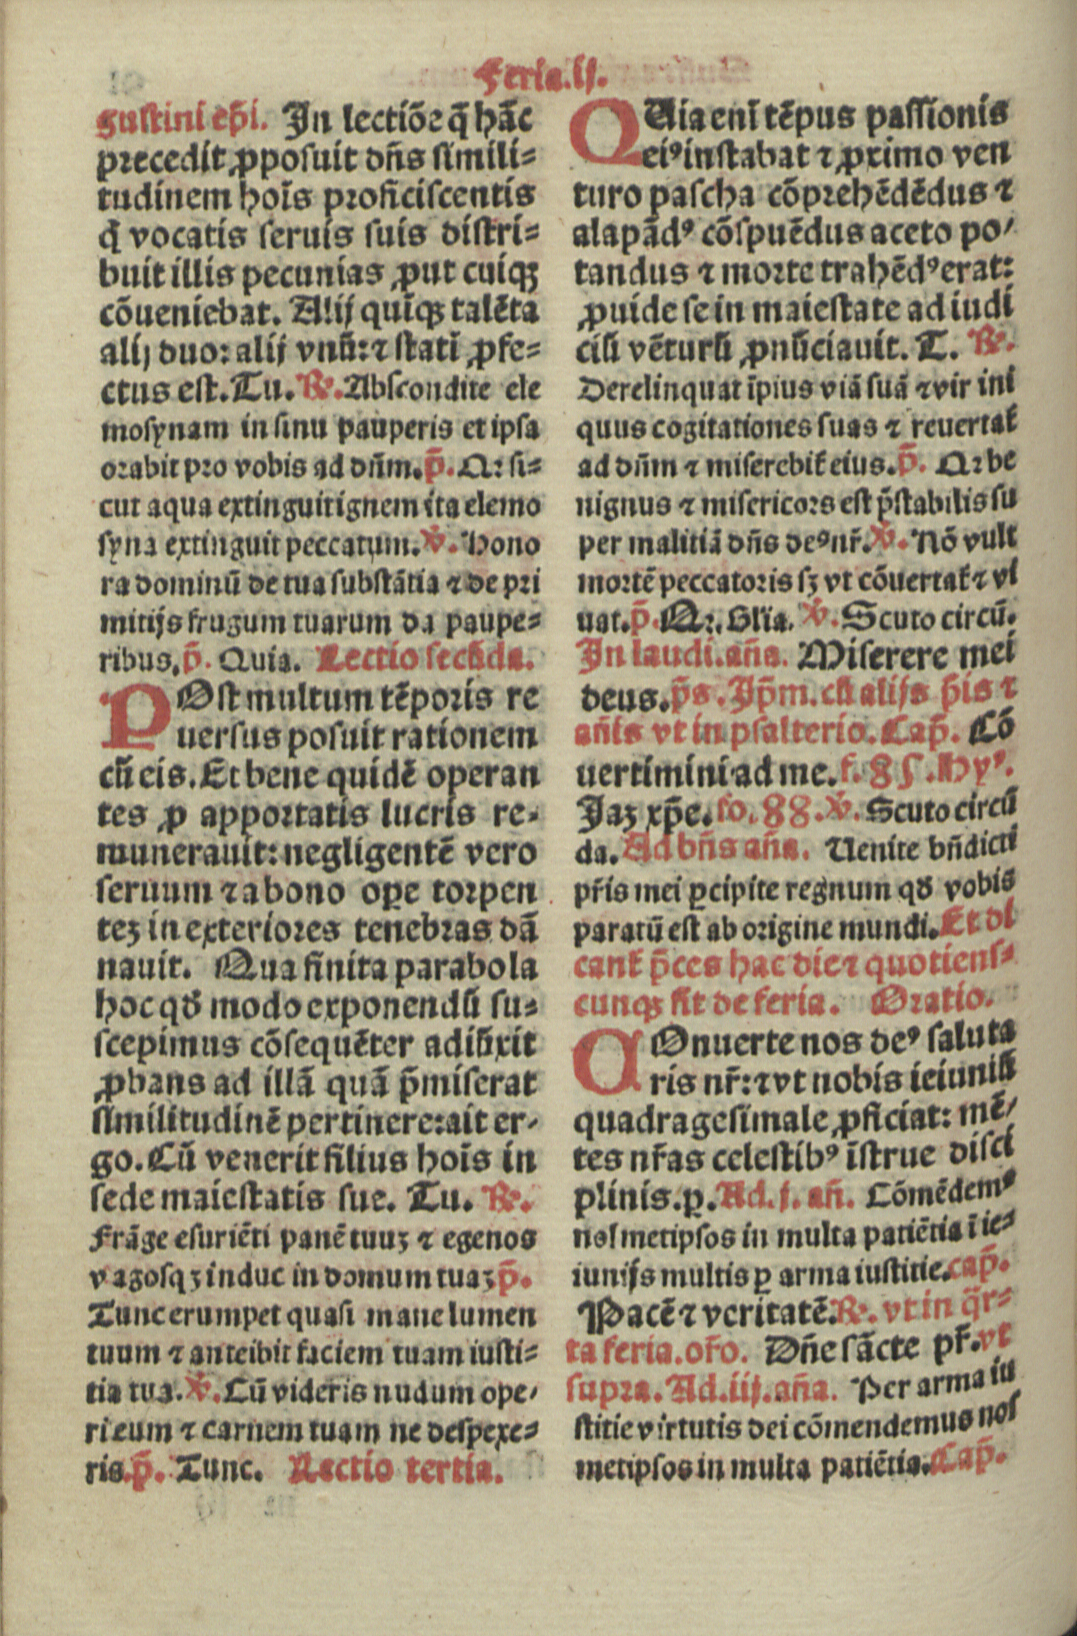 Feria.ij.
gustini ep̄i. In lectiōe q̄ hāc
precedit ꝓposuit dn̄s simili⸗
tudinem hoīs proficiscentis
q̄ vocatis seruis suis distri⸗
buit illis pecunias ꝓut cuiqꝫ
cōueniebat. Alij quīqꝫ talēta
alij duo: alij vnū: ⁊ statī ꝓfe⸗
ctus est. Tu. ℟. Abscondite ele
mosynam in sinu pauperis et ipsa
orabit pro vobis ad dn̄m. p̄. Qr si⸗
cut aqua extinguit ignem ita elemo
syna extinguit peccatum. ℣. Hono
ra dominū de tua substātia ⁊ de pri
mitijs frugum tuarum da paupe⸗
ribus. p̄. Quia. Lectio secūda.
POst multum tēporis re
uersus posuit rationem
cū eis. Et bene quidē operan
tes ꝓ apportatis lucris re⸗
munerauit: negligentē vero
seruum ⁊ a bono oꝑe torpen
teꝫ in exteriores tenebras dā
nauit. Qua finita parabola
hoc qď modo exponendū su⸗
scepimus cōsequēter adiūxit
ꝓbans ad illā quā p̄miserat
similitudinē pertinere: ait er⸗
go. Cū venerit filius hoīs in
sede maiestatis sue. Tu. ℟.
Frāge esuriēti panē tuuꝫ ⁊ egenos
vagosqꝫ induc in domum tuaꝫ p̄.
Tunc erumpet quasi mane lumen
tuum ⁊ anteibit faciem tuam iusti⸗
tia tua. ℣. Cū videris nudum ope⸗
ri eum ⁊ carnem tuam ne despexe⸗
ris. p̄. Tunc. Lectio tertia.
QUia enī tēpus passionis
eiꝰ instabat ⁊ ꝓximo ven
turo pascha cōprehēdēdus ⁊
alapādꝰ cōspuēdus aceto po⸗
tandus ⁊ morte trahēdꝰ erat:
ꝓuide se in maiestate ad iudi
ciū vēturū ꝓnūciauit. T. ℟.
Derelinquat īpius viā suā ⁊ vir ini
quus cogitationes suas ⁊ reuertat̄
ad dn̄m ⁊ miserebit̄ eius. p̄. Qr be
nignus ⁊ misericors est p̄stabilis su
per malitiā dn̄s deꝰ nr̄. ℣. Nō vult
mortē peccatoris sꝫ vt cōuertat̄ ⁊ vi
uat. p̄. Qr. Glīa. ℣. Scuto circū.
In laudi. an̄a. Miserere mei
deus. p̄s. Ip̄m. cū alijs p̄is ⁊
an̄is vt in psalterio. Cap̄. Cō
uertimini ad me. f. 85. Hyꝰ.
Jaꝫ xp̄e. fo. 88. ℣. Scuto circū
da. Ad bn̄s an̄a. Uenite bn̄dicti
pr̄is mei ꝑcipite regnum qď vobis
paratū est ab origine mundi. Et dī
cant̄ p̄ces hac die ⁊ quotiens⸗
cunqꝫ fit de feria. Oratio.
COnuerte nos deꝰ saluta
ris nr̄: ⁊ vt nobis ieiuniū
quadragesimale ꝓficiat: mē⸗
tes nr̄as celestibꝰ īstrue disci
plinis. ꝑ. Ad. j. an̄. Cōmēdemꝰ
nosmetipsos in multa patiētia ī ie⸗
iunijs multis ꝑ arma iustitie. cap̄.
Pacē ⁊ veritatē. ℟. vt in q̄r⸗
ta feria. or̄o. Dn̄e sācte pr̄. vt
supra. Ad. iij. an̄a. Per arma iu
stitie virtutis dei cōmendemus nos
metipsos in multa patiētia. Cap̄.